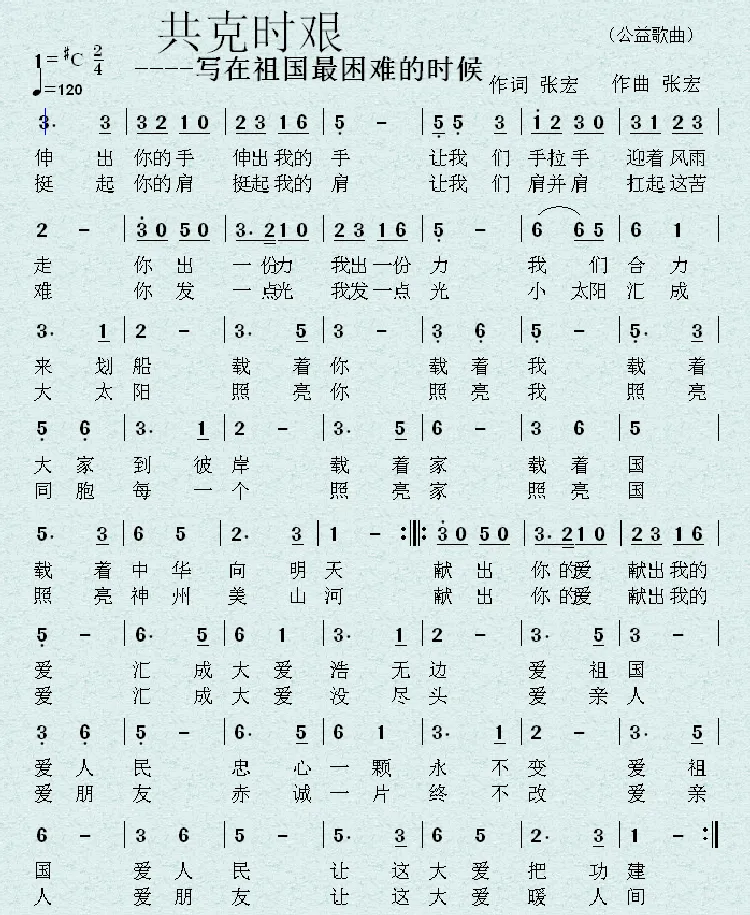 共克时艰
（公益歌曲）
1=#C 2/4
----写在祖国最困难的时候
♩=120
作词 张宏 作曲 张宏
3. 3 | 3 2 1 0 | 2 3 1 6 | 5 - | 5 5 3 | 1 2 3 0 | 3 1 2 3
伸 出 你的手 伸出我的 手 让我 们 手拉手 迎着风雨
挺 起 你的肩 挺起我的 肩 让我 们 肩并肩 扛起这苦
2 - | 3 0 5 0 | 3. 2 1 0 | 2 3 1 6 | 5 - | 6 6 5 | 6 1
走 你 出 一份力 我出一份 力 我 们 合 力
难 你 发 一点光 我发一点 光 小 太阳 汇 成
3. 1 | 2 - | 3. 5 | 3 - | 3 6 | 5 - | 5. 3
来 划 船 载 着 你 载 着 我 载 着
大 太 阳 照 亮 你 照 亮 我 照 亮
5 6 | 3. 1 | 2 - | 3. 5 | 6 - | 3 6 | 5
大 家 到 彼 岸 载 着 家 载 着 国
同 胞 每 一 个 照 亮 家 照 亮 国
5. 3 | 6 5 | 2. 3 | 1 - :||: 3 0 5 0 | 3. 2 1 0 | 2 3 1 6
载 着 中 华 向 明 天 献 出 你 的爱 献出我的
照 亮 神 州 美 山 河 献 出 你 的爱 献出我的
5 - | 6. 5 | 6 1 | 3. 1 | 2 - | 3. 5 | 3 -
爱 汇 成 大 爱 浩 无 边 爱 祖 国
爱 汇 成 大 爱 没 尽 头 爱 亲 人
3 6 | 5 - | 6. 5 | 6 1 | 3. 1 | 2 - | 3. 5
爱 人 民 忠 心 一 颗 永 不 变 爱 祖
爱 朋 友 赤 诚 一 片 终 不 改 爱 亲
6 - | 3 6 | 5 - | 5. 3 | 6 5 | 2. 3 | 1 - :||
国 爱 人 民 让 这 大 爱 把 功 建
人 爱 朋 友 让 这 大 爱 暖 人 间